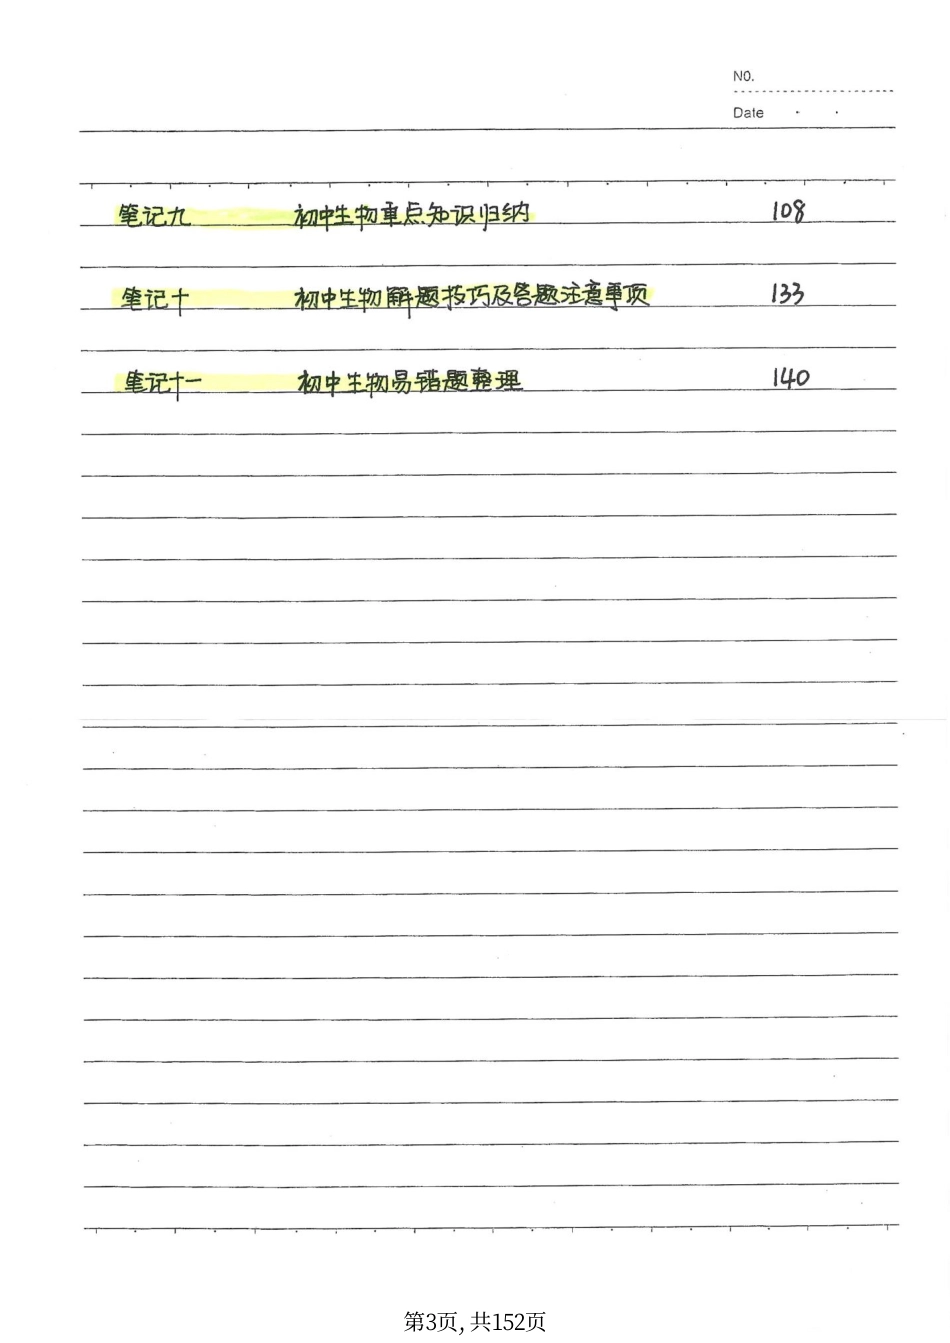 NO.
Date
笔记九 初中生物重点知识归纳 108
笔记十 初中生物解题技巧及答题注意事项 133
笔记十一 初中生物易错题整理 140
第3页, 共152页